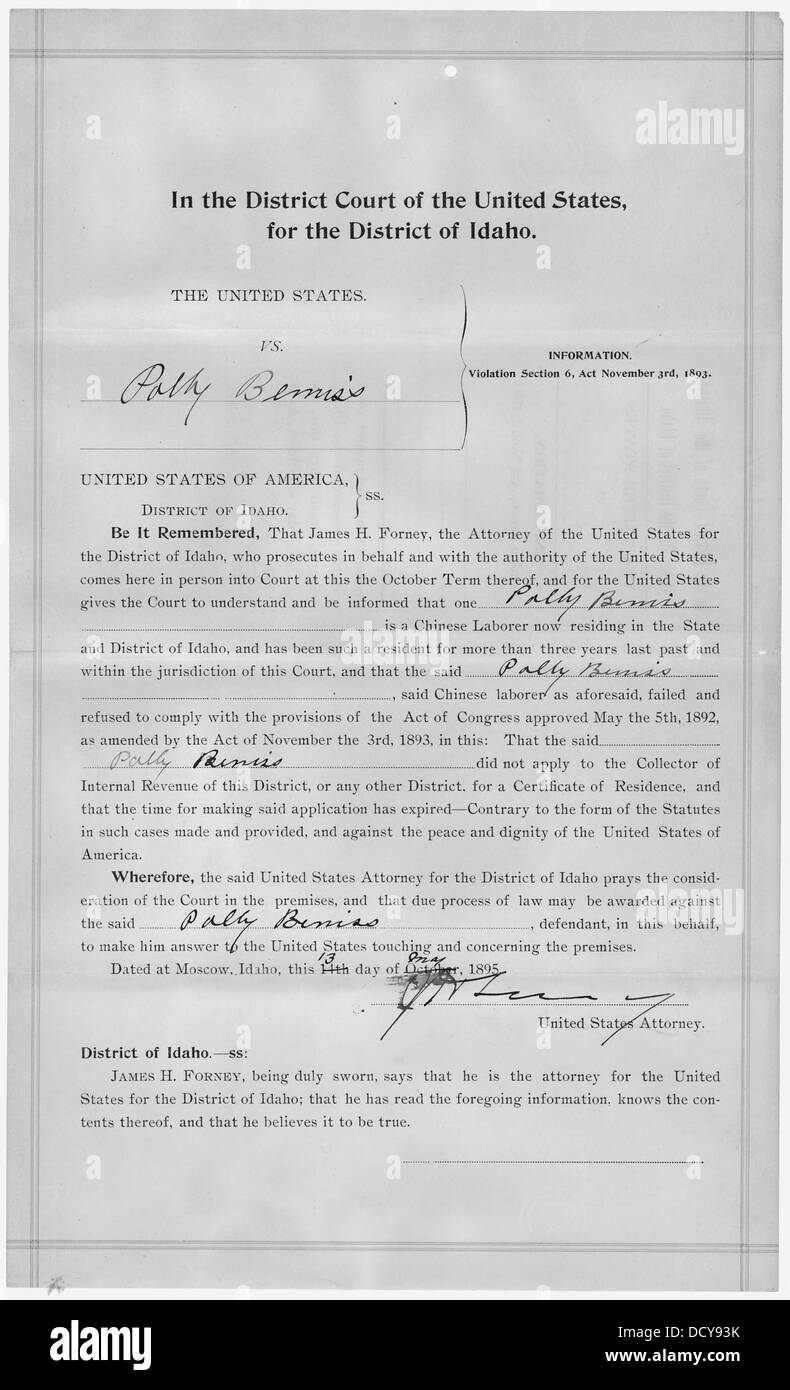 In the District Court of the United States,
for the District of Idaho.
THE UNITED STATES.
VS.
Polly Bemis's
INFORMATION.
Violation Section 6, Act November 3rd, 1893.
UNITED STATES OF AMERICA,
DISTRICT OF IDAHO.
ss.
Be It Remembered, That James H. Forney, the Attorney of the United States for
the District of Idaho, who prosecutes in behalf and with the authority of the United States,
comes here in person into Court at this the October Term thereof, and for the United States
gives the Court to understand and be informed that one Polly Bemis
is a Chinese Laborer now residing in the State
and District of Idaho, and has been such a resident for more than three years last past and
within the jurisdiction of this Court, and that the said Polly Bemis
, said Chinese laborer as aforesaid, failed and
refused to comply with the provisions of the Act of Congress approved May the 5th, 1892,
as amended by the Act of November the 3rd, 1893, in this: That the said
Polly Bemiss did not apply to the Collector of
Internal Revenue of this District, or any other District, for a Certificate of Residence, and
that the time for making said application has expired—Contrary to the form of the Statutes
in such cases made and provided, and against the peace and dignity of the United States of
America.
Wherefore, the said United States Attorney for the District of Idaho prays the consid-
eration of the Court in the premises, and that due process of law may be awarded against
the said Polly Bemiss, defendant, in this behalf,
to make him answer to the United States touching and concerning the premises.
13 May
Dated at Moscow, Idaho, this 14th day of October, 1895
United States Attorney.
District of Idaho.—ss:
JAMES H. FORNEY, being duly sworn, says that he is the attorney for the United
States for the District of Idaho; that he has read the foregoing information, knows the con-
tents thereof, and that he believes it to be true.
alamy
www.alamy.com
Image ID: DCY93K